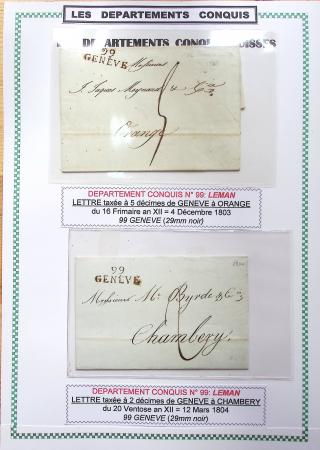 LES DEPARTEMENTS CONQUIS
DE ARTEMENTS CONQU UISSES
99
GENÈVE
Messieurs
Meynard & C.ie
Orange
5
DEPARTEMENT CONQUIS N° 99: LEMAN
LETTRE taxée à 5 décimes de GENEVE à ORANGE
du 16 Frimaire an XII = 4 Décembre 1803
99 GENEVE (29mm noir)
99
GENÈVE
Monsieur Mr. Byrde & C.ie
2
Chambery.
DEPARTEMENT CONQUIS N° 99: LEMAN
LETTRE taxée à 2 décimes de GENEVE à CHAMBERY
du 20 Ventose an XII = 12 Mars 1804
99 GENEVE (29mm noir)